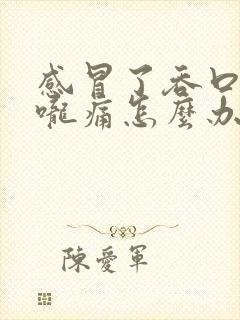 感冒了吞口
嚨痛怎麼办
陳愛軍